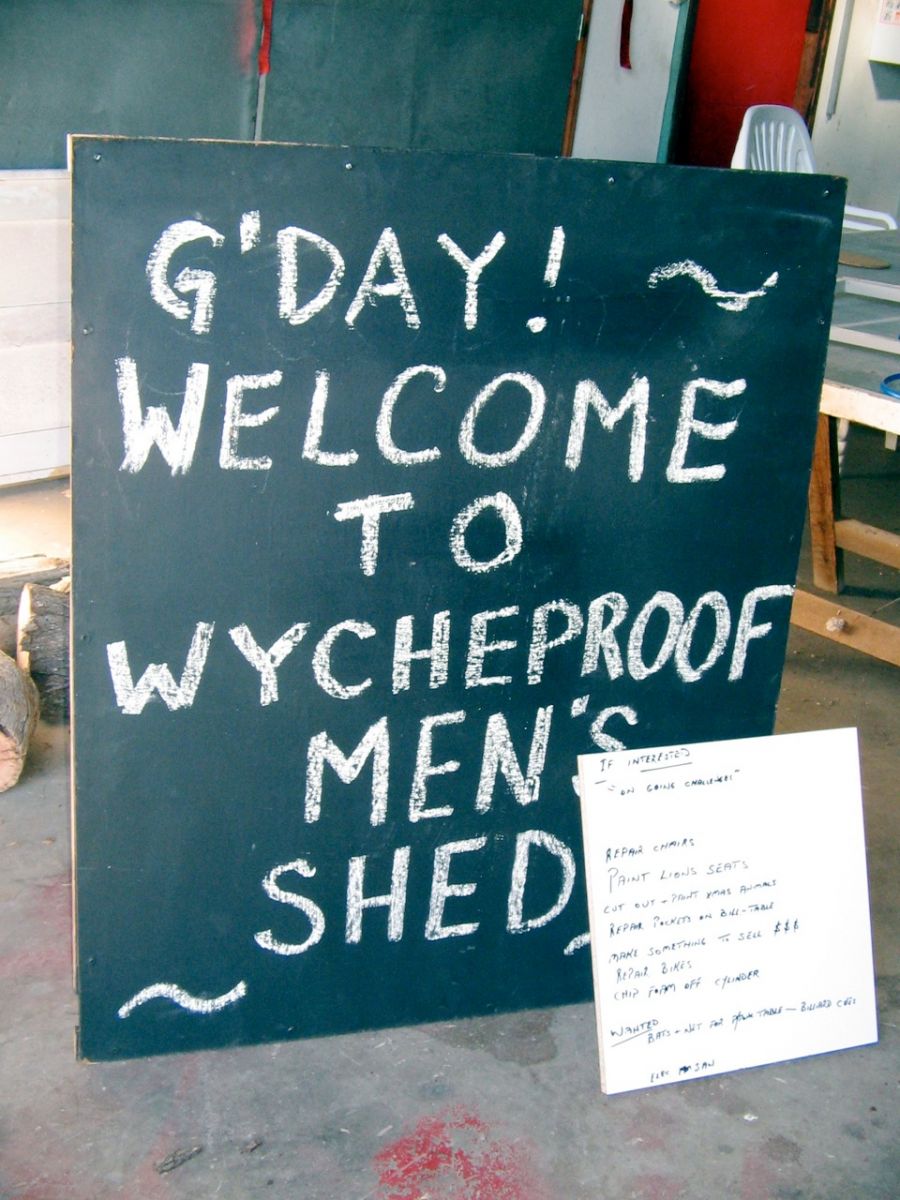 G'DAY!
WELCOME
TO
WYCHEPROOF
MEN'S
SHED
IF INTERESTED
"ON GOING CHALLENGES"
REPAIR CHAIRS
PAINT LIONS SEATS
CUT OUT + PAINT XMAS ANIMALS
REPAIR POCKETS ON BILL-TABLE
MAKE SOMETHING TO SELL $$$
REPAIR BIKES
CHIP FOAM OFF CYLINDER
WANTED
BATS + NET FOR TABLE - BILLIARD CUES
ELEC SAW